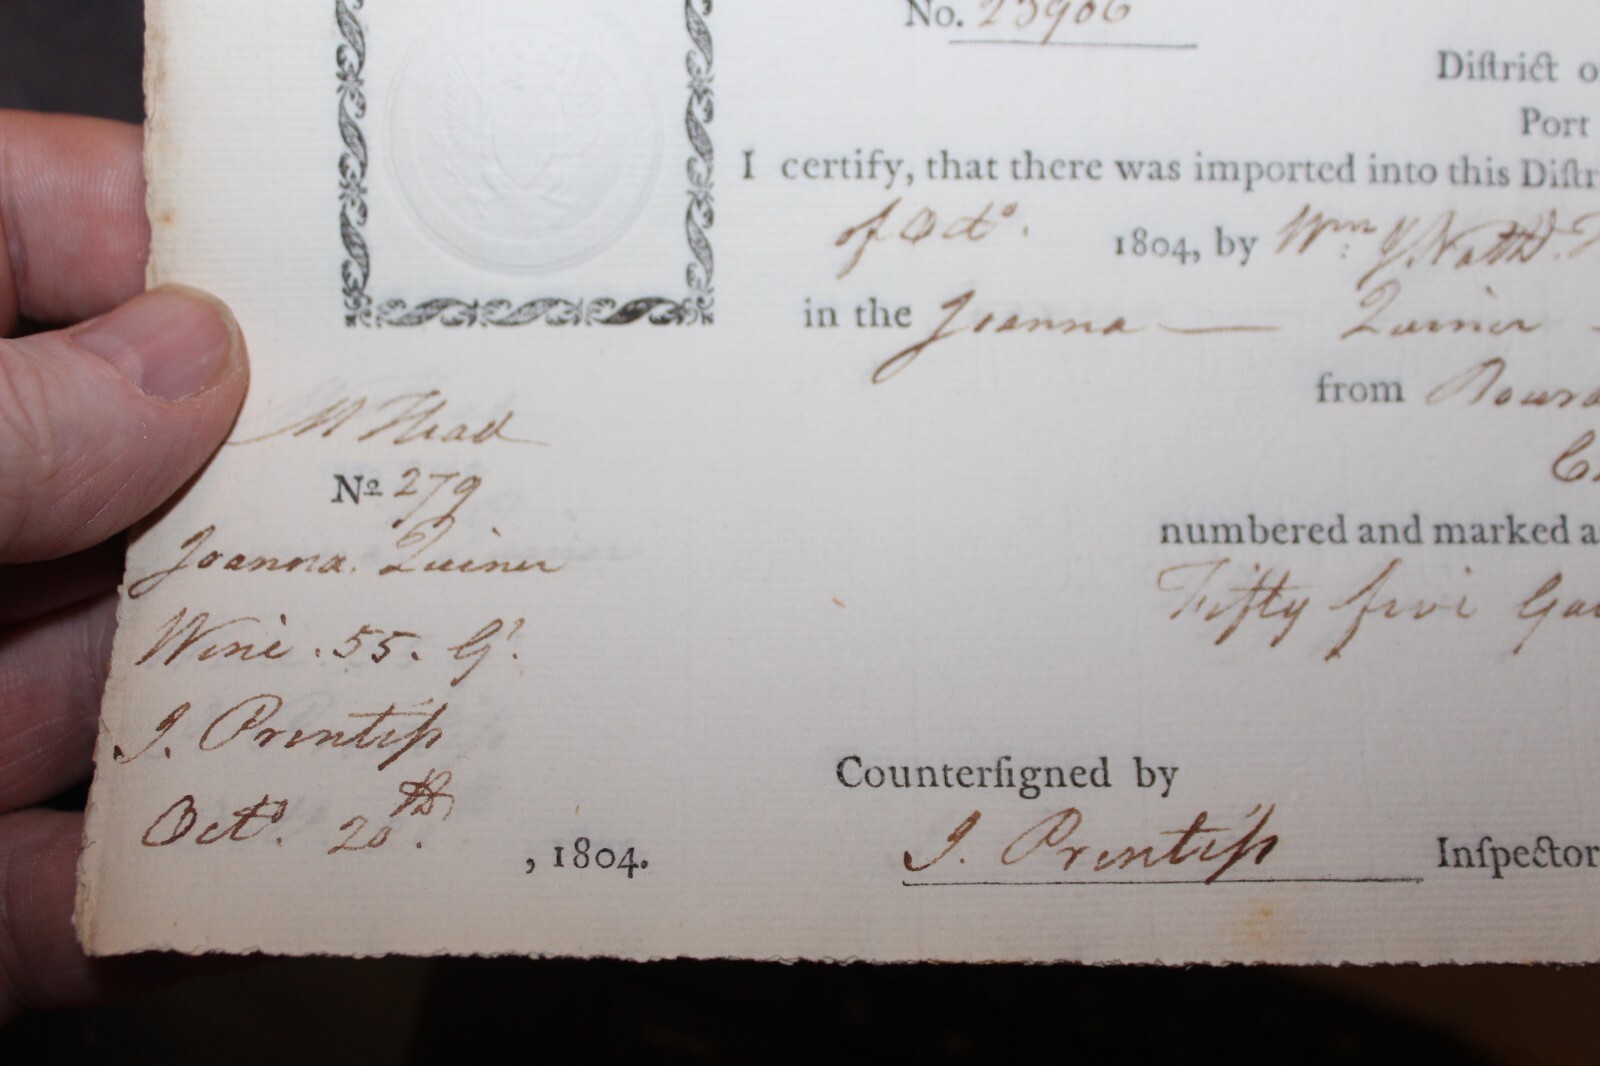 No. 23906
Diſtrict o
Port
I certify, that there was imported into this Diſtr
of Octo. 1804, by Wm: & Nathl.
in the Joanna — Quiner
from Bourd
numbered and marked a
Fifty five Gal
Countersſigned by
J. Prentiſs Inſpector
W Head
No 279
Joanna. Quiner
Wine . 55. Gs.
J. Prentiſs
Octo. 20th. , 1804.